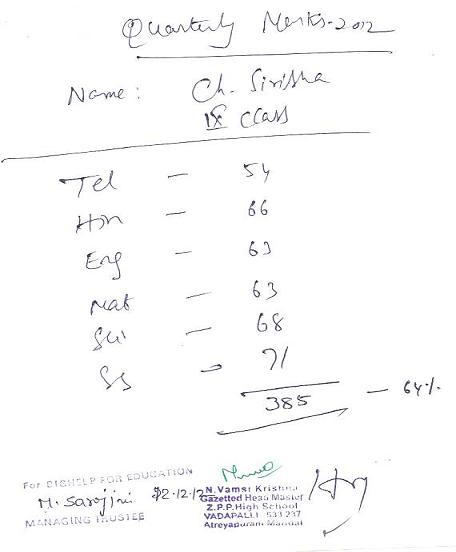 Quarterly Marks-2012
Name: Ch. Sirisha
IX Class
Tel - 54
Hin - 66
Eng - 63
Mat - 63
Sci - 68
SS - 71
385 - 64%
For DISHELP FOR EDUCATION
M. Sarojini
MANAGING TRUSTEE
12.12.12
N. Vamsi Krishna
Gazetted Head Master
Z.P.P. High School
VADAPALLI 533 237
Atreyapuram Mandal